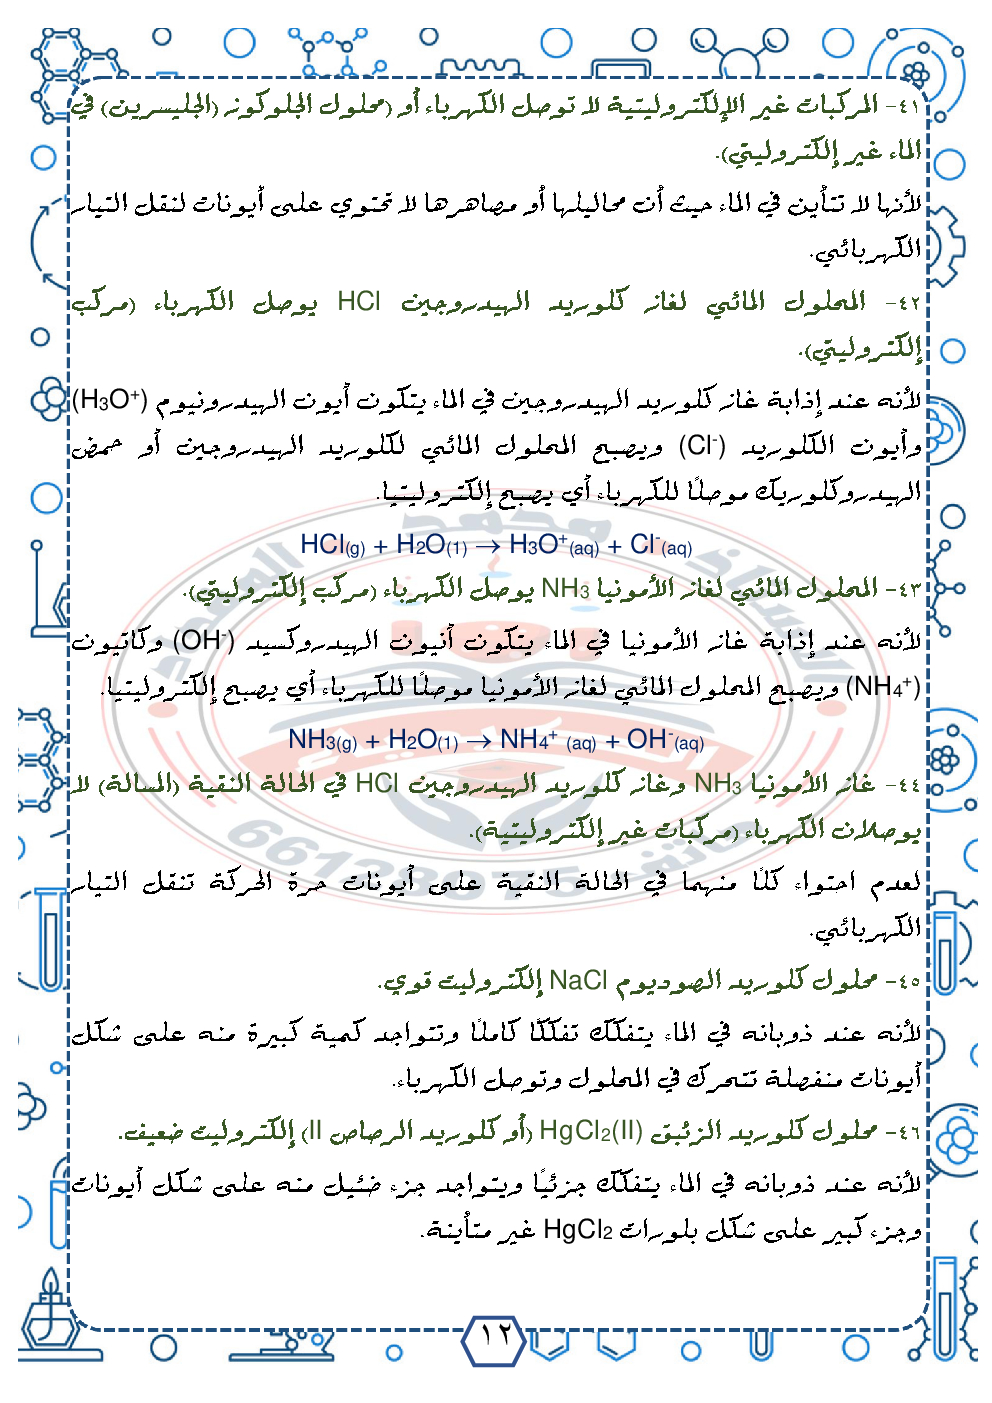 ٤١- المركبات غير الإلكتروليتية لا توصل الكهرباء أو (محلول الجلوكوز (الجليسرين) في
الماء غير إلكتروليتي).
لأنها لا تتأين في الماء حيث أن محاليلها أو مصاهرها لا تحتوي على أيونات لنقل التيار
الكهربائي.
٤٢- المحلول المائي لغاز كلوريد الهيدروجين HCl يوصل الكهرباء (مركب
إلكتروليتي).
لأنه عند إذابة غاز كلوريد الهيدروجين في الماء يتكون أيون الهيدرونيوم (H3O+)
وأيون الكلوريد (Cl-) ويصبح المحلول المائي لكلوريد الهيدروجين أو حمض
الهيدروكلوريك موصلًا للكهرباء أي يصبح إلكتروليتيا.
HCl(g) + H2O(1) → H3O+(aq) + Cl-(aq)
٤٣- المحلول المائي لغاز الأمونيا NH3 يوصل الكهرباء (مركب إلكتروليتي).
لأنه عند إذابة غاز الأمونيا في الماء يتكون أنيون الهيدروكسيد (OH-) وكاتيون
(NH4+) ويصبح المحلول المائي لغاز الأمونيا موصلًا للكهرباء أي يصبح إلكتروليتيا.
NH3(g) + H2O(1) → NH4+ (aq) + OH-(aq)
٤٤- غاز الأمونيا NH3 وغاز كلوريد الهيدروجين HCl في الحالة النقية (المسالة) لا
يوصلان الكهرباء (مركبات غير إلكتروليتية).
لعدم احتواء كلًا منهما في الحالة النقية على أيونات حرة الحركة تنقل التيار
الكهربائي.
٤٥- محلول كلوريد الصوديوم NaCl إلكتروليت قوي.
لأنه عند ذوبانه في الماء يتفكك تفككًا كاملًا وتتواجد كمية كبيرة منه على شكل
أيونات منفصلة تتحرك في المحلول وتوصل الكهرباء.
٤٦- محلول كلوريد الزئبق HgCl2(II) (أو كلوريد الرصاص II) إلكتروليت ضعيف.
لأنه عند ذوبانه في الماء يتفكك جزئيًا ويتواجد جزء ضئيل منه على شكل أيونات
وجزء كبير على شكل بلورات HgCl2 غير متأينة.
١٢